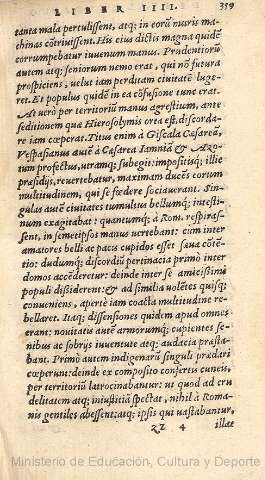 LIBER IIII. 359
tanta mala pertulissent, atq; in eorũ muris ma-
chinas cõtrivissent. His eius dictis magna quidẽ
corrumpebatur iuvenum manus. Prudentiorũ
autem atq; seniorum nemo erat, qui nõ futura
prospiciens, velut iam perditam civitatẽ luge-
ret. Et populus quidẽ in ea cõfusione tunc erat.
At vero per territoriũ manus agrestium, ante
seditionem quæ Hierosolymis orta est, discorda-
re iam cœperat. Titus enim à Giscala Cæsareã,
Vespasianus autẽ à Cæsarea Iamniã &
tum profectus, utramq; subegit: impositisq; illic
præsidijs, revertebatur, maximam ducẽs eorum
multitudinem, qui se fœdere sociaverant. Sin-
gulas autẽ civitates tumultus bellumq; intesti-
num exagitabat: quantumq; à Rom. respiras-
sent, in semetipsos manus vertebant: cum inter
amatores belli ac pacis cupidos esset sæva cõtẽ-
tio: dudumq; discordiũ pertinacia primò inter
domos accẽderetur: deinde inter se amicissimi
populi dissiderent: & ad similia volẽtes quisq;
conveniens, apertè iam coacta multitudine re-
bellaret. Itaq; dissensiones quidem apud omnes
erant: novitatis autẽ armorumq; cupientes se-
nibus ac sobrijs iuventute atq; audacia præsta-
bant. Primò autem indigenarũ singuli prædari
cœperunt: deinde ex composito confertis cuneis,
per territoriũ latrocinabantur: ut quod ad cru-
delitatem atq; iniustitiã spectat, nihil à Roma-
nis gentiles abessent: atq; ipsis qui vastabantur,
zz 4 illae
Ministerio de Educación, Cultura y Deporte